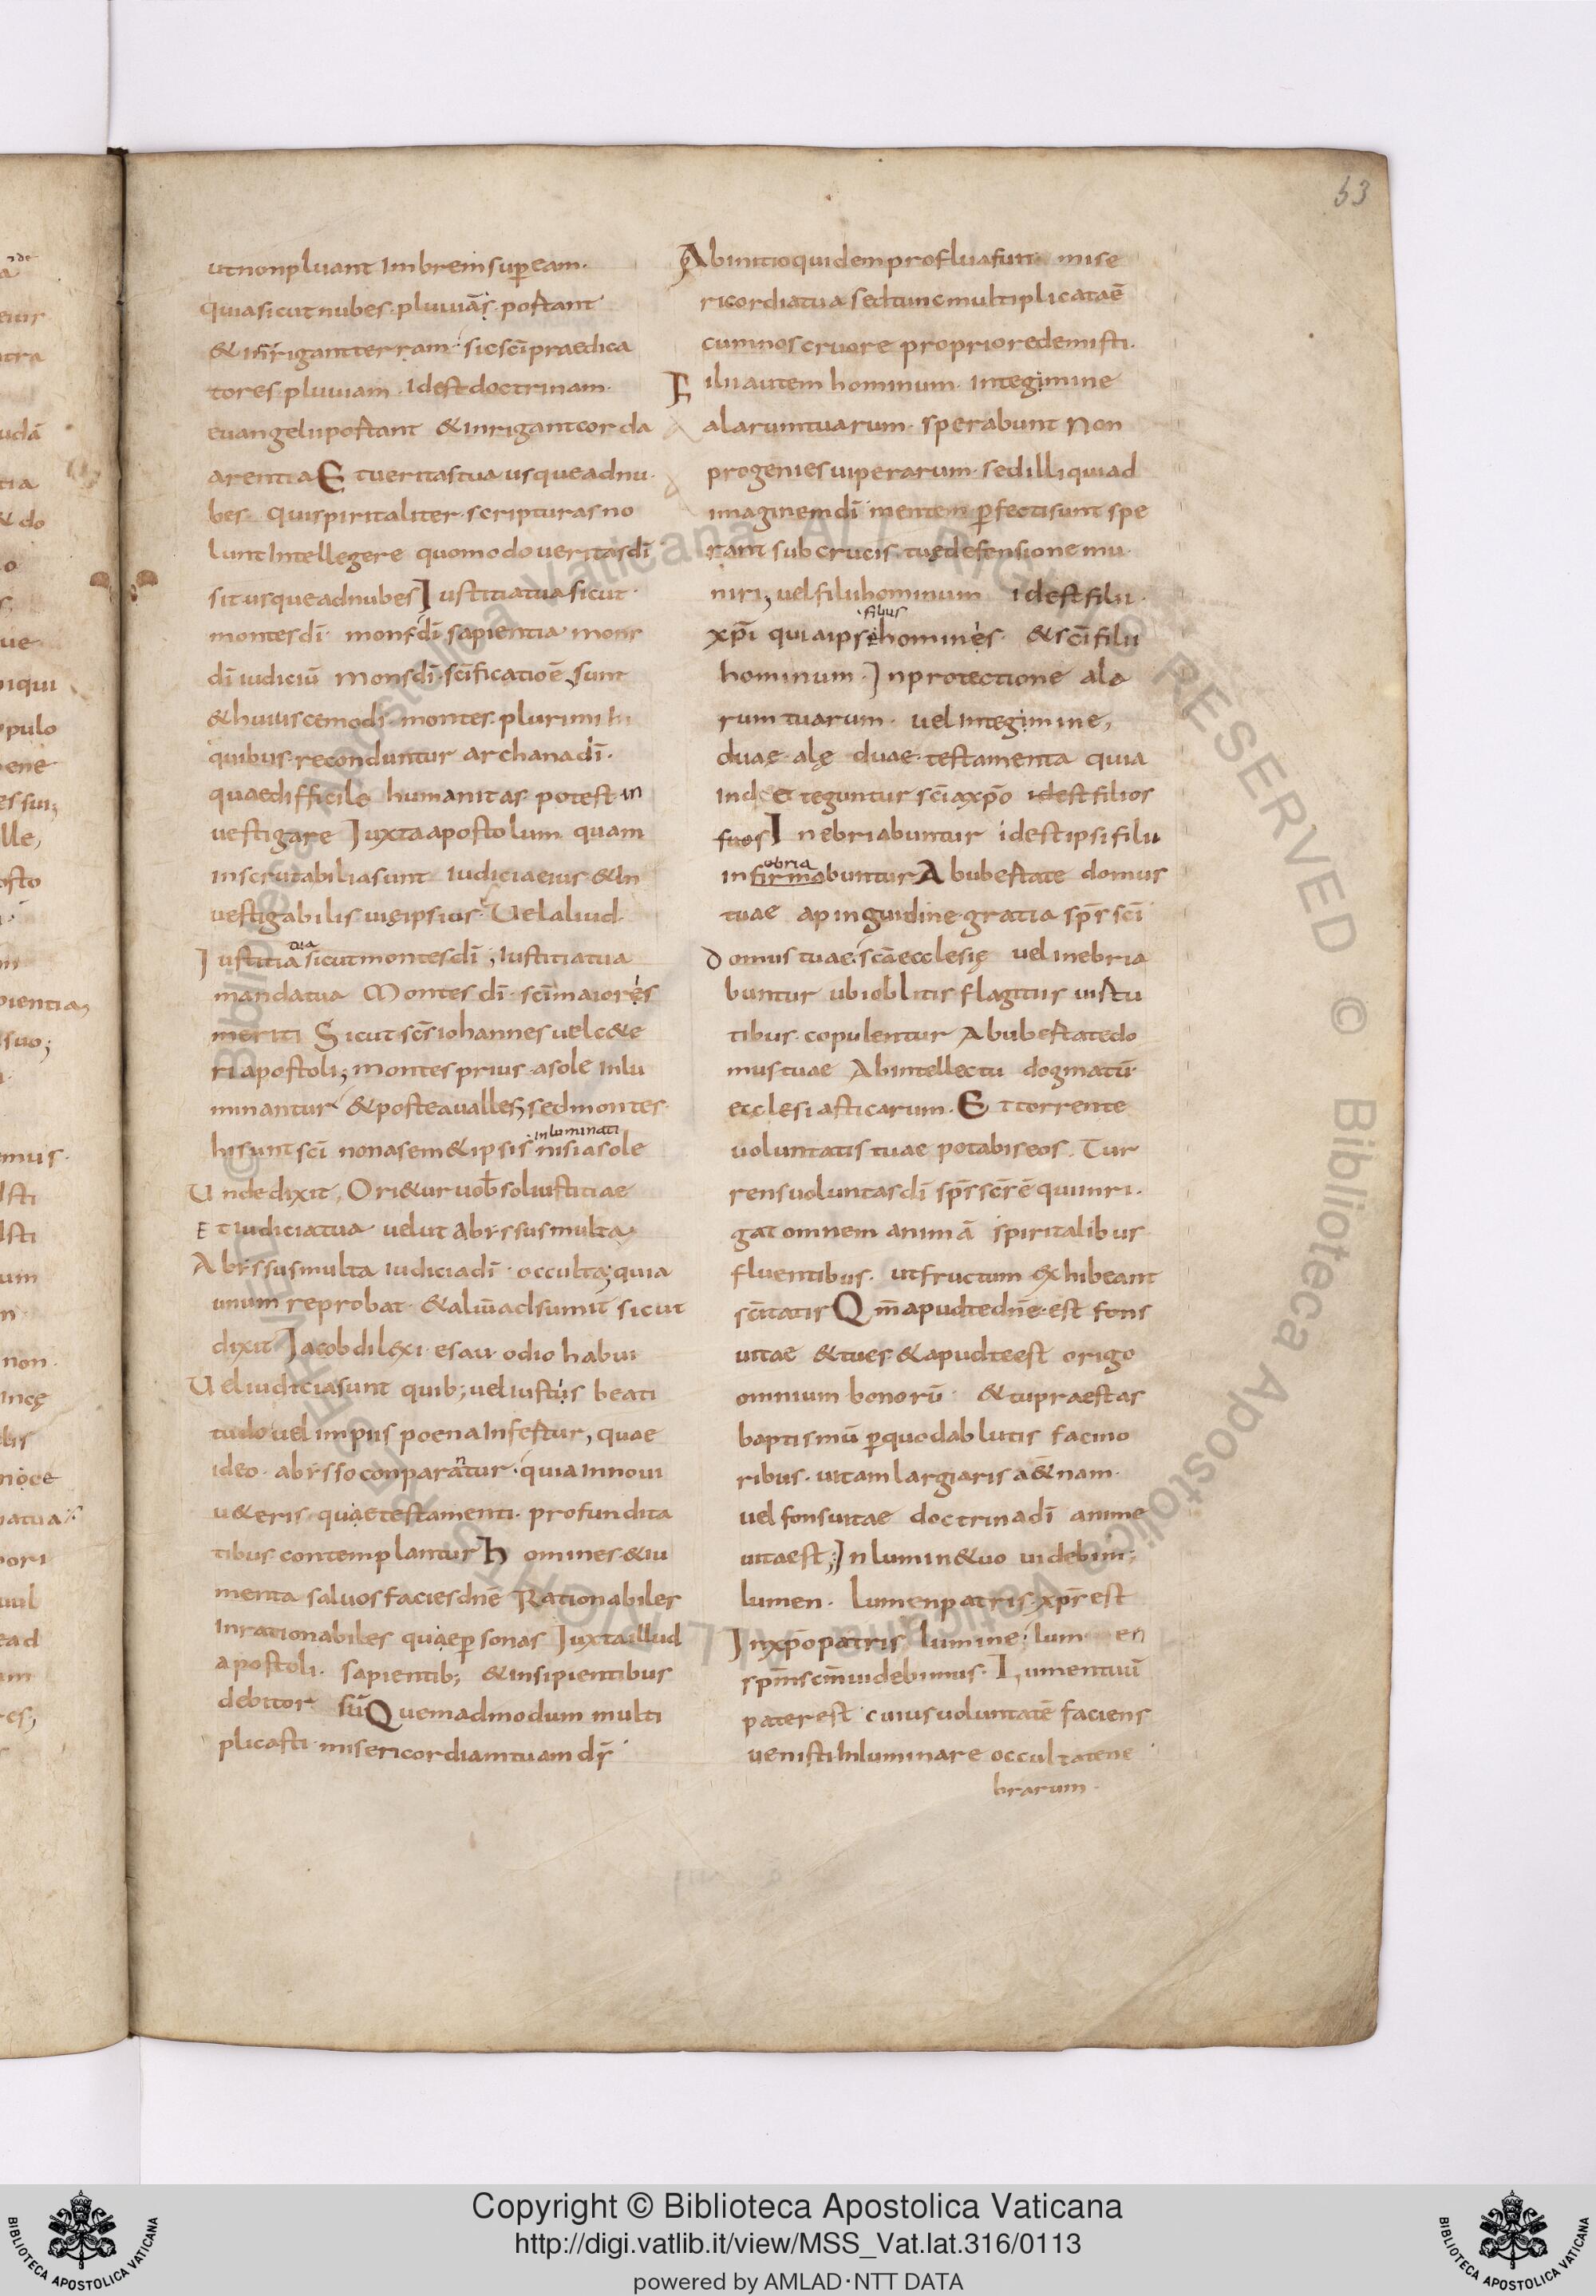 53
ut non pluant imbrem sup eam·
quia sicut nubes· pluuiãs· postant
& inrigant terram· sic sc̄i praedica
tores· pluuiam· idest doctrinam·
euangelii postant & inrigant corda
arentia Et ueritas tua usque ad nu·
bes· qui spiritaliter scripturas no
lunt intellegere quomodo ueritas dī
sit usque ad nubes Iustitia tua sicut·
montes dī· mons dī sapientia mons
dī iudiciū mons dī· sc̄ificatioē sunt
& huiuscemodi montes plurimi in
quibus· reconduntur archana dī·
quae difficile humanitas potest in
uestigare Iuxta apostolum quam
inscrutabilia sunt iudicia eius & in
uestigabilis uię ipsius· Uel aliud·
Iustitia tua sicut montes dī; iustitia tua
mandatua Montes dī· sc̄i maiores
meriti Sicut sc̄s iohannes uel c&e
ri apostoli; montes prius· a sole inlu
minantur & postea ualles; sed montes·
hi sunt sc̄i non a sem&ipsis· inluminati nisi a sole
Unde dixit, Ori&ur uob̄ sol iustitiae
Et iudicia tua uelut abissus multa
Abissus multa iudicia dī· occulta; quia
unum reprobat· & aliū adsumit sicut
dixit Iacob dilexi· esau odio habui
Uel iudicia sunt quib; uel iustus beati
tudo uel impiis poena infestur, quae
ideo· abisso conparantur· quia in noui
u&eris· quae testamenti· profundita
tibus contemplantur Homines & iu
menta saluos facies dn̄e Rationabiles
inrationabiles quae p sonas Iuxta illud
apostoli· sapientib; & insipientibus
debitor· sū Quemadmodum multi
plicasti misericordiam tuam d̄s·
Ab initio quidem proflua fuit mise
ricordia tua sed tunc multiplicata ē
cum nos cruore proprio redemisti·
Filii autem hominum· in tegimine
alarum tuarum· sperabunt Non
progenies uiperarum· sed illi qui ad
imaginem dī mentem pfecti sunt spe
rant sub crucis· tuę defensione mu·
niri; uel filii hominum idest filii·
xp̄i quia ipse filius hominis· & sc̄i filii
hominum· In protectione ala
rum tuarum· uel in tegimine,
duae alę duae testamenta quia
inde teguntur sc̄i a xp̄o idest filios
suos Inebriabuntur idest ipsi filii
infirmabuntur ebria Ab ubestate domus
tuae a pinguidine gratia sp̄s sc̄i
domus tuae· sc̄a ecclesię uel inebria
buntur ubi oblitis flagitiis uistu
tibus· copulentur Ab ubestate do
mus tuae Ab intellectu dogmatū
ecclesiasticarum· Et torrente
uoluntatis tuae potabis eos. Tur
rens uoluntas dī sp̄s sc̄s ē qui inri·
gat omnem animā spiritalibus·
fluentibus· ut fructum exhibeant
sc̄itatis Qm̄ apud te dn̄e· est fons
uitae & tu es & apud te est origo
omnium bonorū· & tu praestas
baptismū p quod ablutis facino
ribus· uitam largiaris a&nam·
uel fons uitae doctrina dī anime
uita est; In lumine & uo uidebim;
lumen· lumen patris· xp̄s est
In xp̄o patris lumine; lumen
sp̄m sc̄m uidebimus· Lumen tuū
pater est cuius uoluntatē faciens
uenisti inluminare occulta tene
brarum·
Copyright © Biblioteca Apostolica Vaticana
http://digi.vatlib.it/view/MSS_Vat.lat.316/0113
powered by AMLAD·NTT DATA
BIBLIOTECA APOSTOLICA VATICANA
BIBLIOTECA APOSTOLICA VATICANA